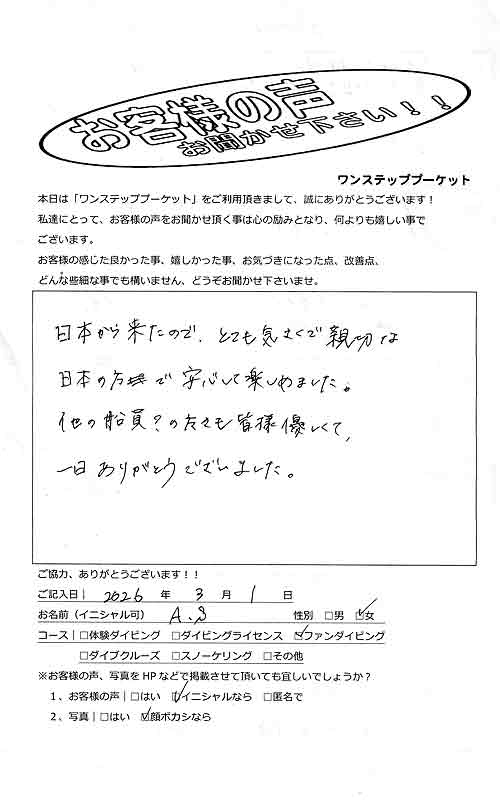 お客様の声
お聞かせ下さい！！
ワンステッププーケット
本日は「ワンステッププーケット」をご利用頂きまして、誠にありがとうございます！
私達にとって、お客様の声をお聞かせ頂く事は心の励みとなり、何よりも嬉しい事で
ございます。
お客様の感じた良かった事、嬉しかった事、お気づきになった点、改善点、
どんな些細な事でも構いません、どうぞお聞かせ下さいませ。
日本から来たので、とても気さくで親切な
日本の方で安心して楽しめました。
他の船員？の方も皆様優しくて、
一日ありがとうございました。
ご協力、ありがとうございます！！
ご記入日｜ 2026 年 3 月 1 日
お名前（イニシャル可） A.S 性別 □男 ☑女
コース｜□体験ダイビング □ダイビングライセンス ☑ファンダイビング
□ダイブクルーズ □スノーケリング □その他
※お客様の声、写真をHPなどで掲載させて頂いても宜しいでしょうか？
1、お客様の声｜□はい ☑イニシャルなら □匿名で
2、写真｜□はい ☑顔ボカシなら